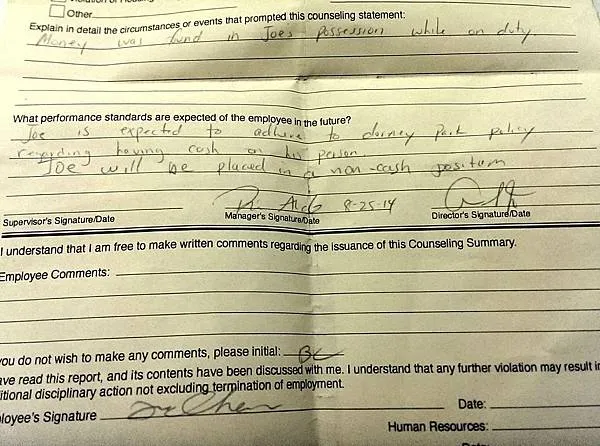 Other
Explain in detail the circumstances or events that prompted this counseling statement:
Money was fund in Joes possession while on duty.
What performance standards are expected of the employee in the future?
Joe is expected to adhere to dorney Park policy
regarding having cash on his person.
JOE will be placed in a non-cash position
8-25-14
Supervisor's Signature/Date Manager's Signature/Date Director's Signature/Date
I understand that I am free to make written comments regarding the issuance of this Counseling Summary.
Employee Comments:
you do not wish to make any comments, please initial:
ave read this report, and its contents have been discussed with me. I understand that any further violation may result in
itional disciplinary action not excluding termination of employment.
ployee's Signature Date:
Human Resources: